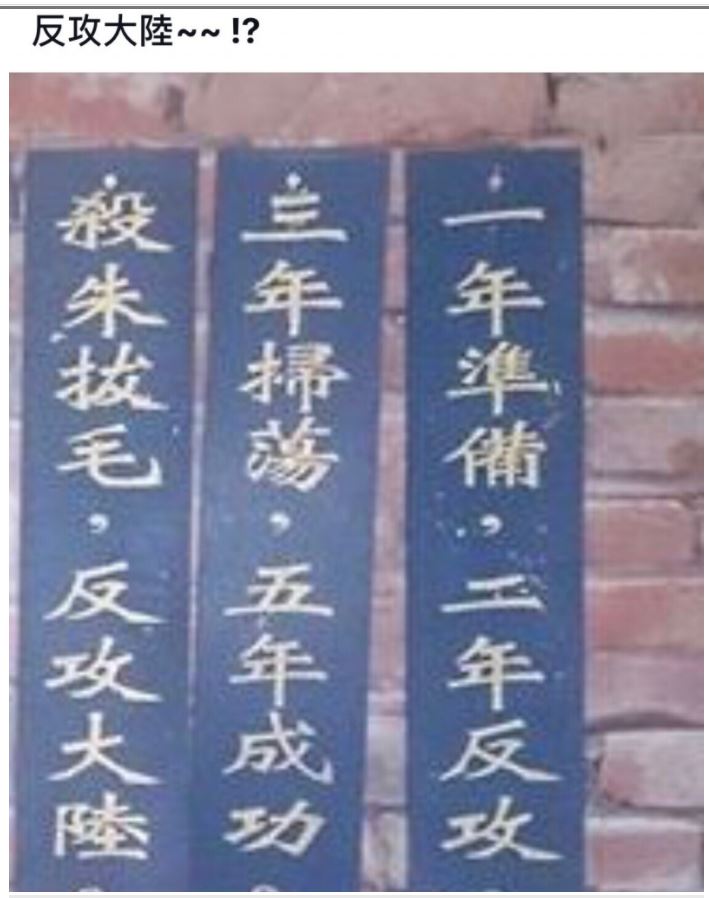 反攻大陸~~ !?
一年準備，二年反攻
三年掃蕩，五年成功
殺朱拔毛，反攻大陸